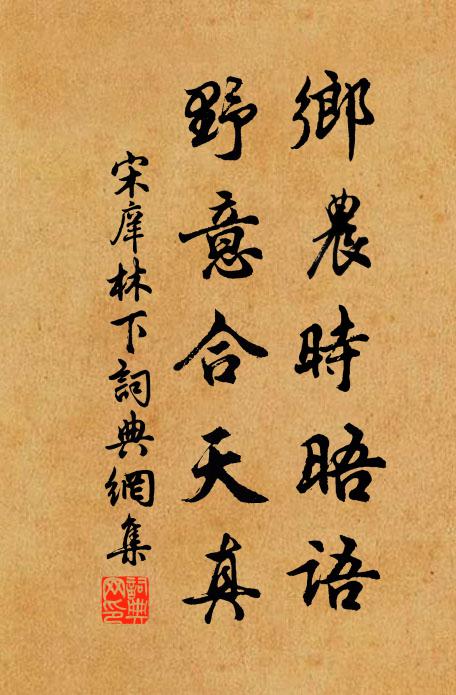 鄉農時晤語
野意合天真
宋庠林下詞典網集
詞典網印